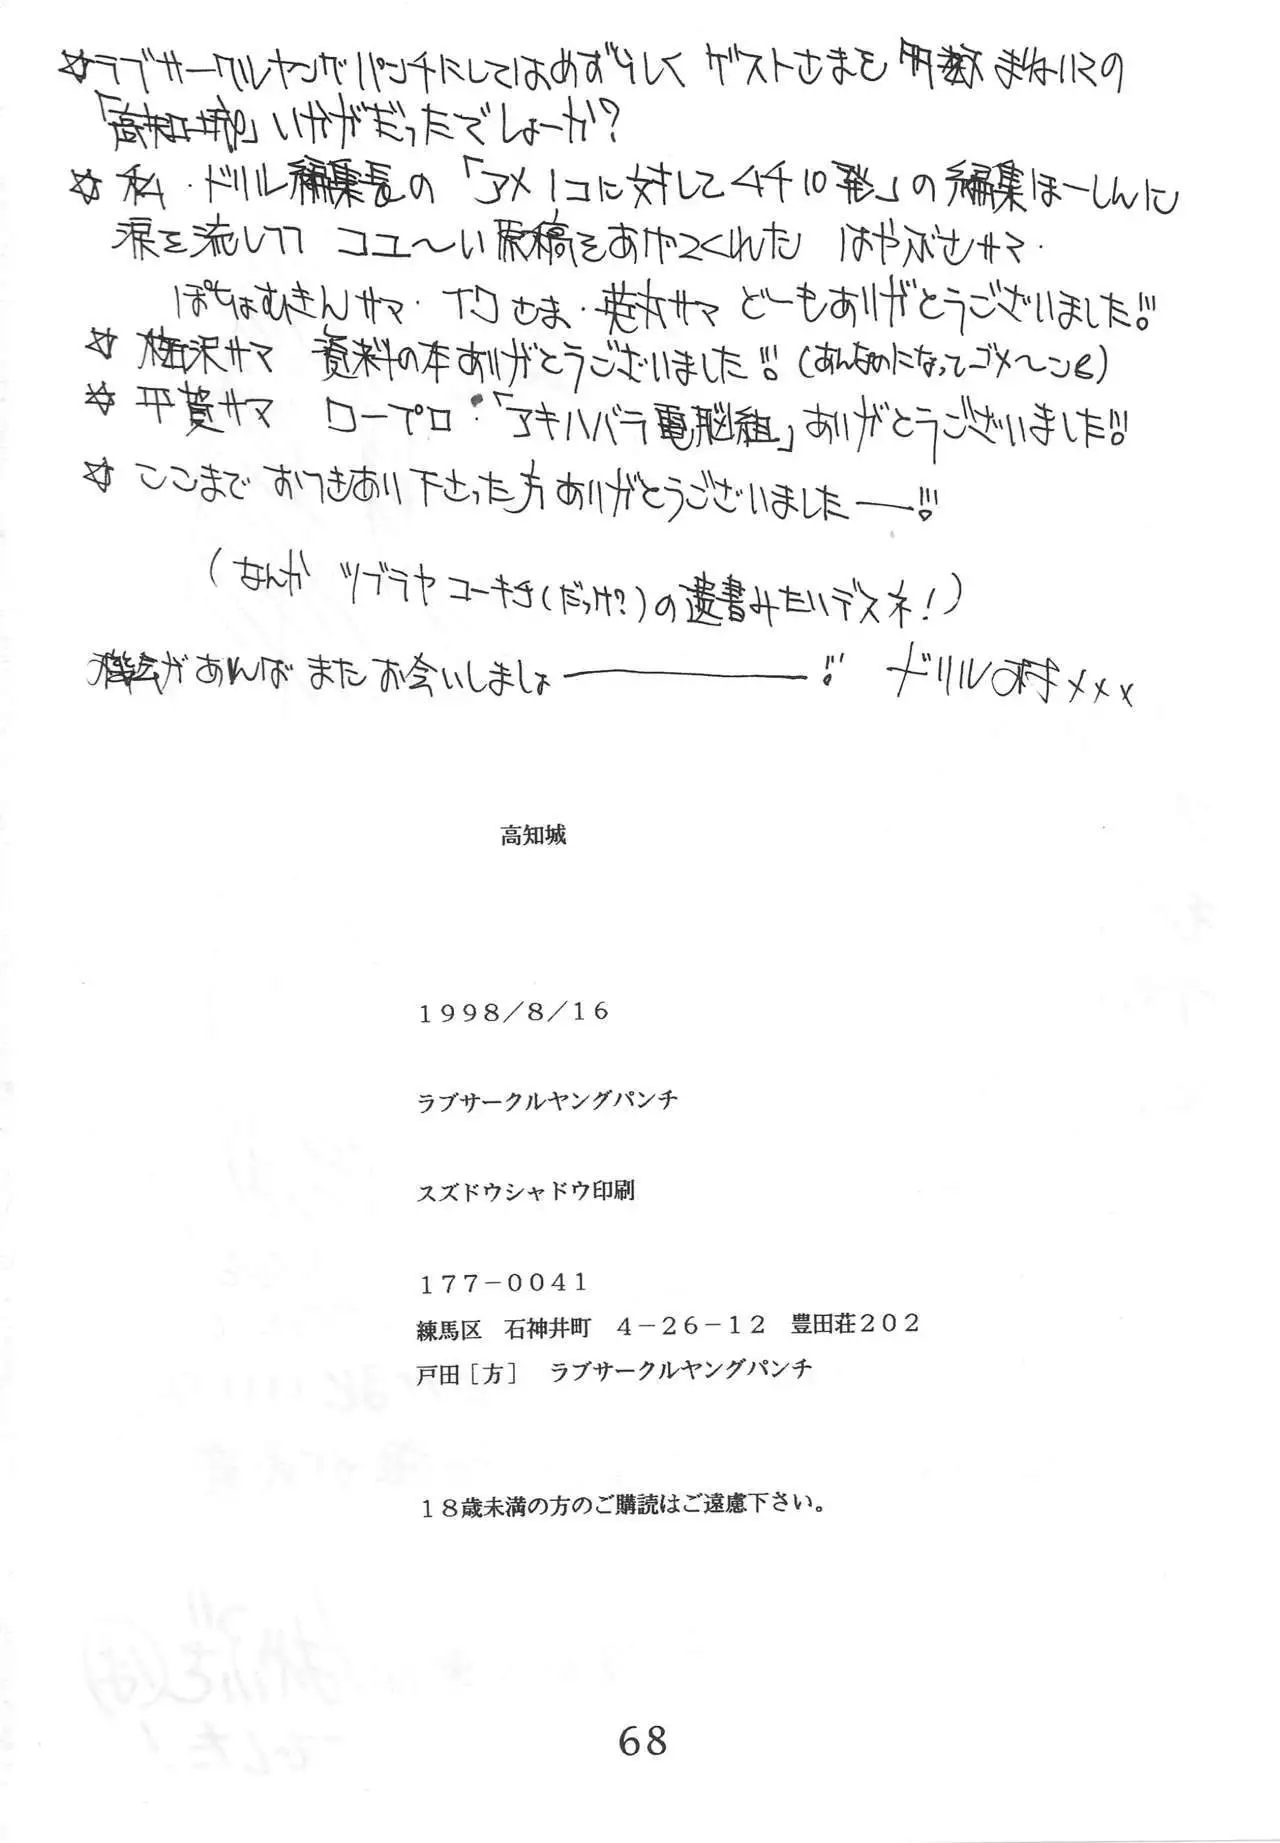 ☆ラブサークルヤングパンチにしてはめずらしく ゲストさまを 多数 まねいての
「高知城」いかがだったでしょーか?
☆ 私・ドリル編集長の「アメ1コに対してムチ10発」の編集ほーしんに
涙を流しつつ コユ〜い 原稿をあげてくれた はやぶさサマ・
ぽちょむきんサマ・ さま・ サマ どーもありがとうございました!!
☆ 梅沢サマ 資料の本ありがとうございました!! (あんなめになってゴメ〜ン)
☆ 平賀サマ ワープロ・「アキハバラ電脳組」ありがとうございました!!
☆ ここまで おつきあい下さった方ありがとうございました——!!
(なんか ツブラヤ コーキチ(だっけ?)の遺書みたいデスネ!)
機会があれば また お会いしましょ————!! ドリル村×××
高知城
1998/8/16
ラブサークルヤングパンチ
スズドウシャドウ印刷
177−0041
練馬区 石神井町 4−26−12 豊田荘202
戸田[方] ラブサークルヤングパンチ
18歳未満の方のご購読はご遠慮下さい。
68